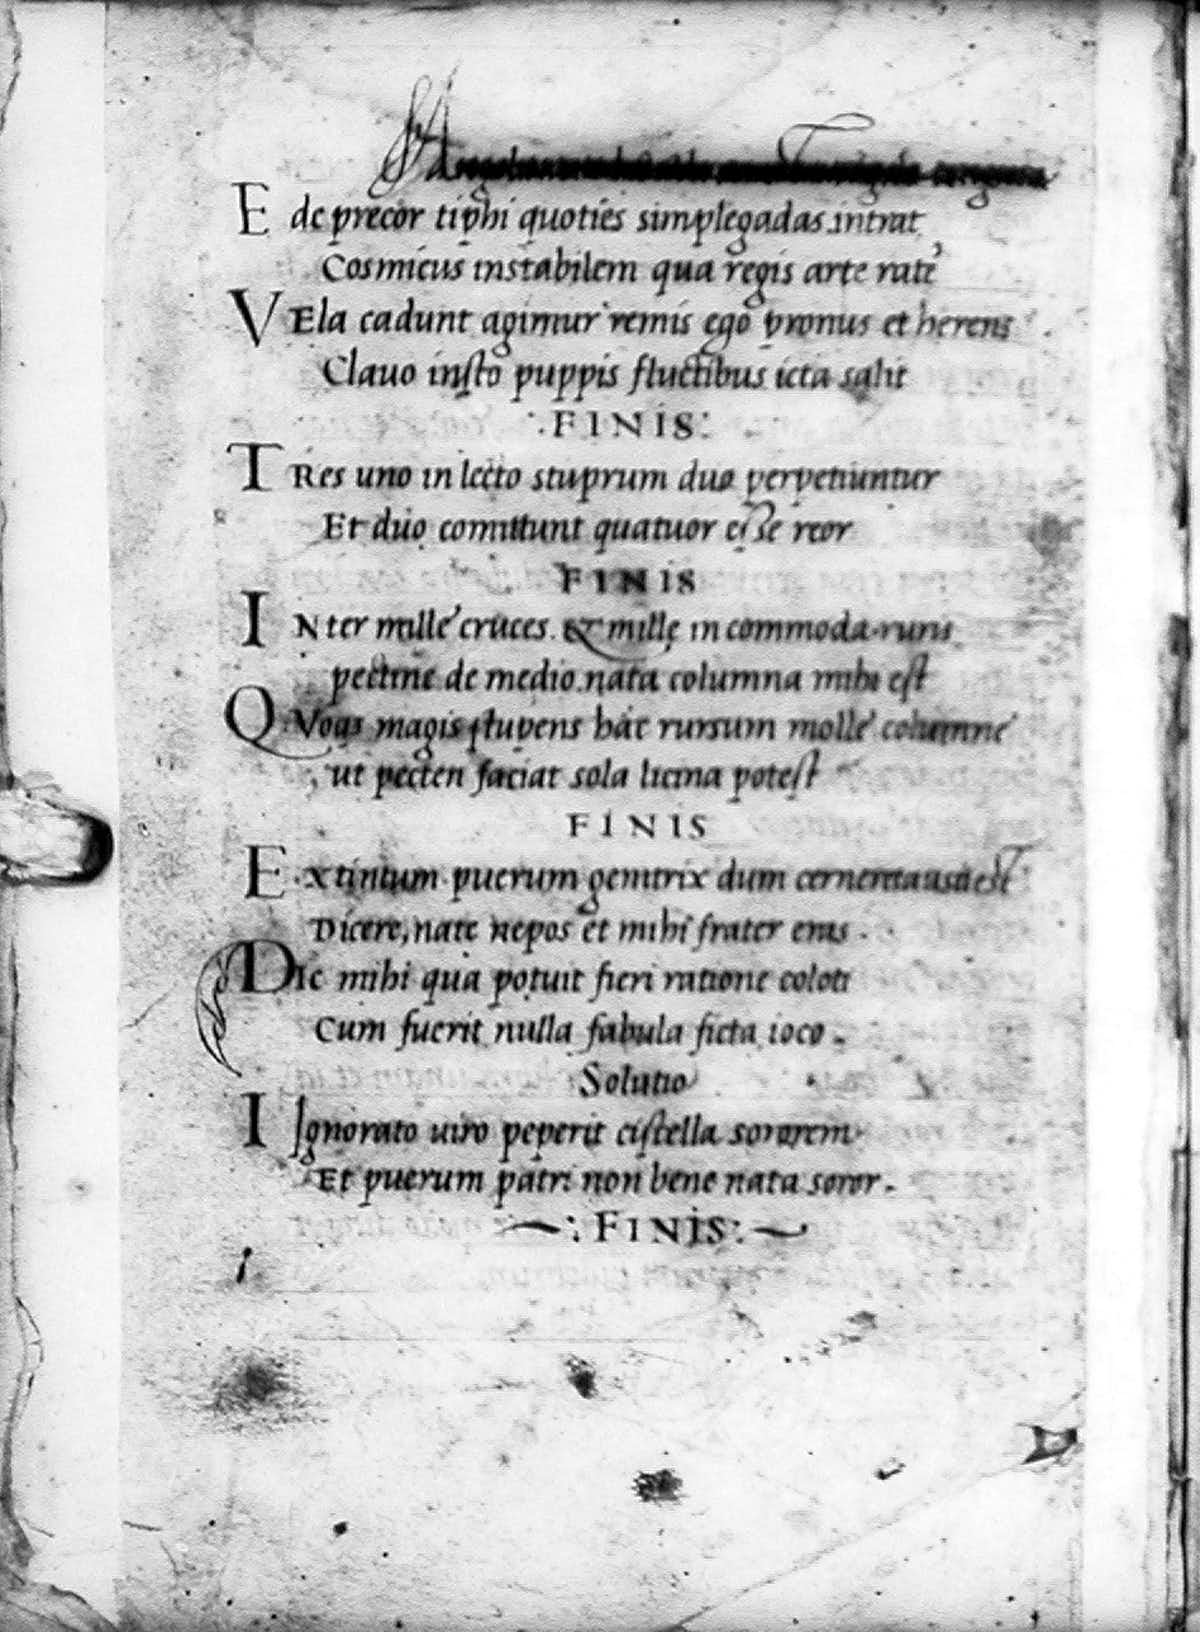 E de precor tiphi quoties simplegadas intrat
Cosmicus instabilem qua regis arte rate
VEla cadunt agimur remis ego pronus et herens
Clauo insto puppis fluctibus icta salit
:FINIS:
TRes uno in lecto stuprum duo perpetiuntur
Et duo comittunt quatuor esse reor
FINIS
INter mille cruces. & mille incommoda ruris
pectine de medio nata columna mihi est
QVoqs magis stupens hac rursum molle columne
ut pecten faciat sola licina potest
FINIS
Extintum puerum genitrix dum cerneret est
Dicere, nate nepos et mihi frater eras.
DIc mihi qua potuit fieri ratione coloti
Cum fuerit nulla fabula ficta ioco.
Solutio
I Ignorato uiro peperit cistella sororem
Et puerum patri non bene nata soror.
~:FINIS:~